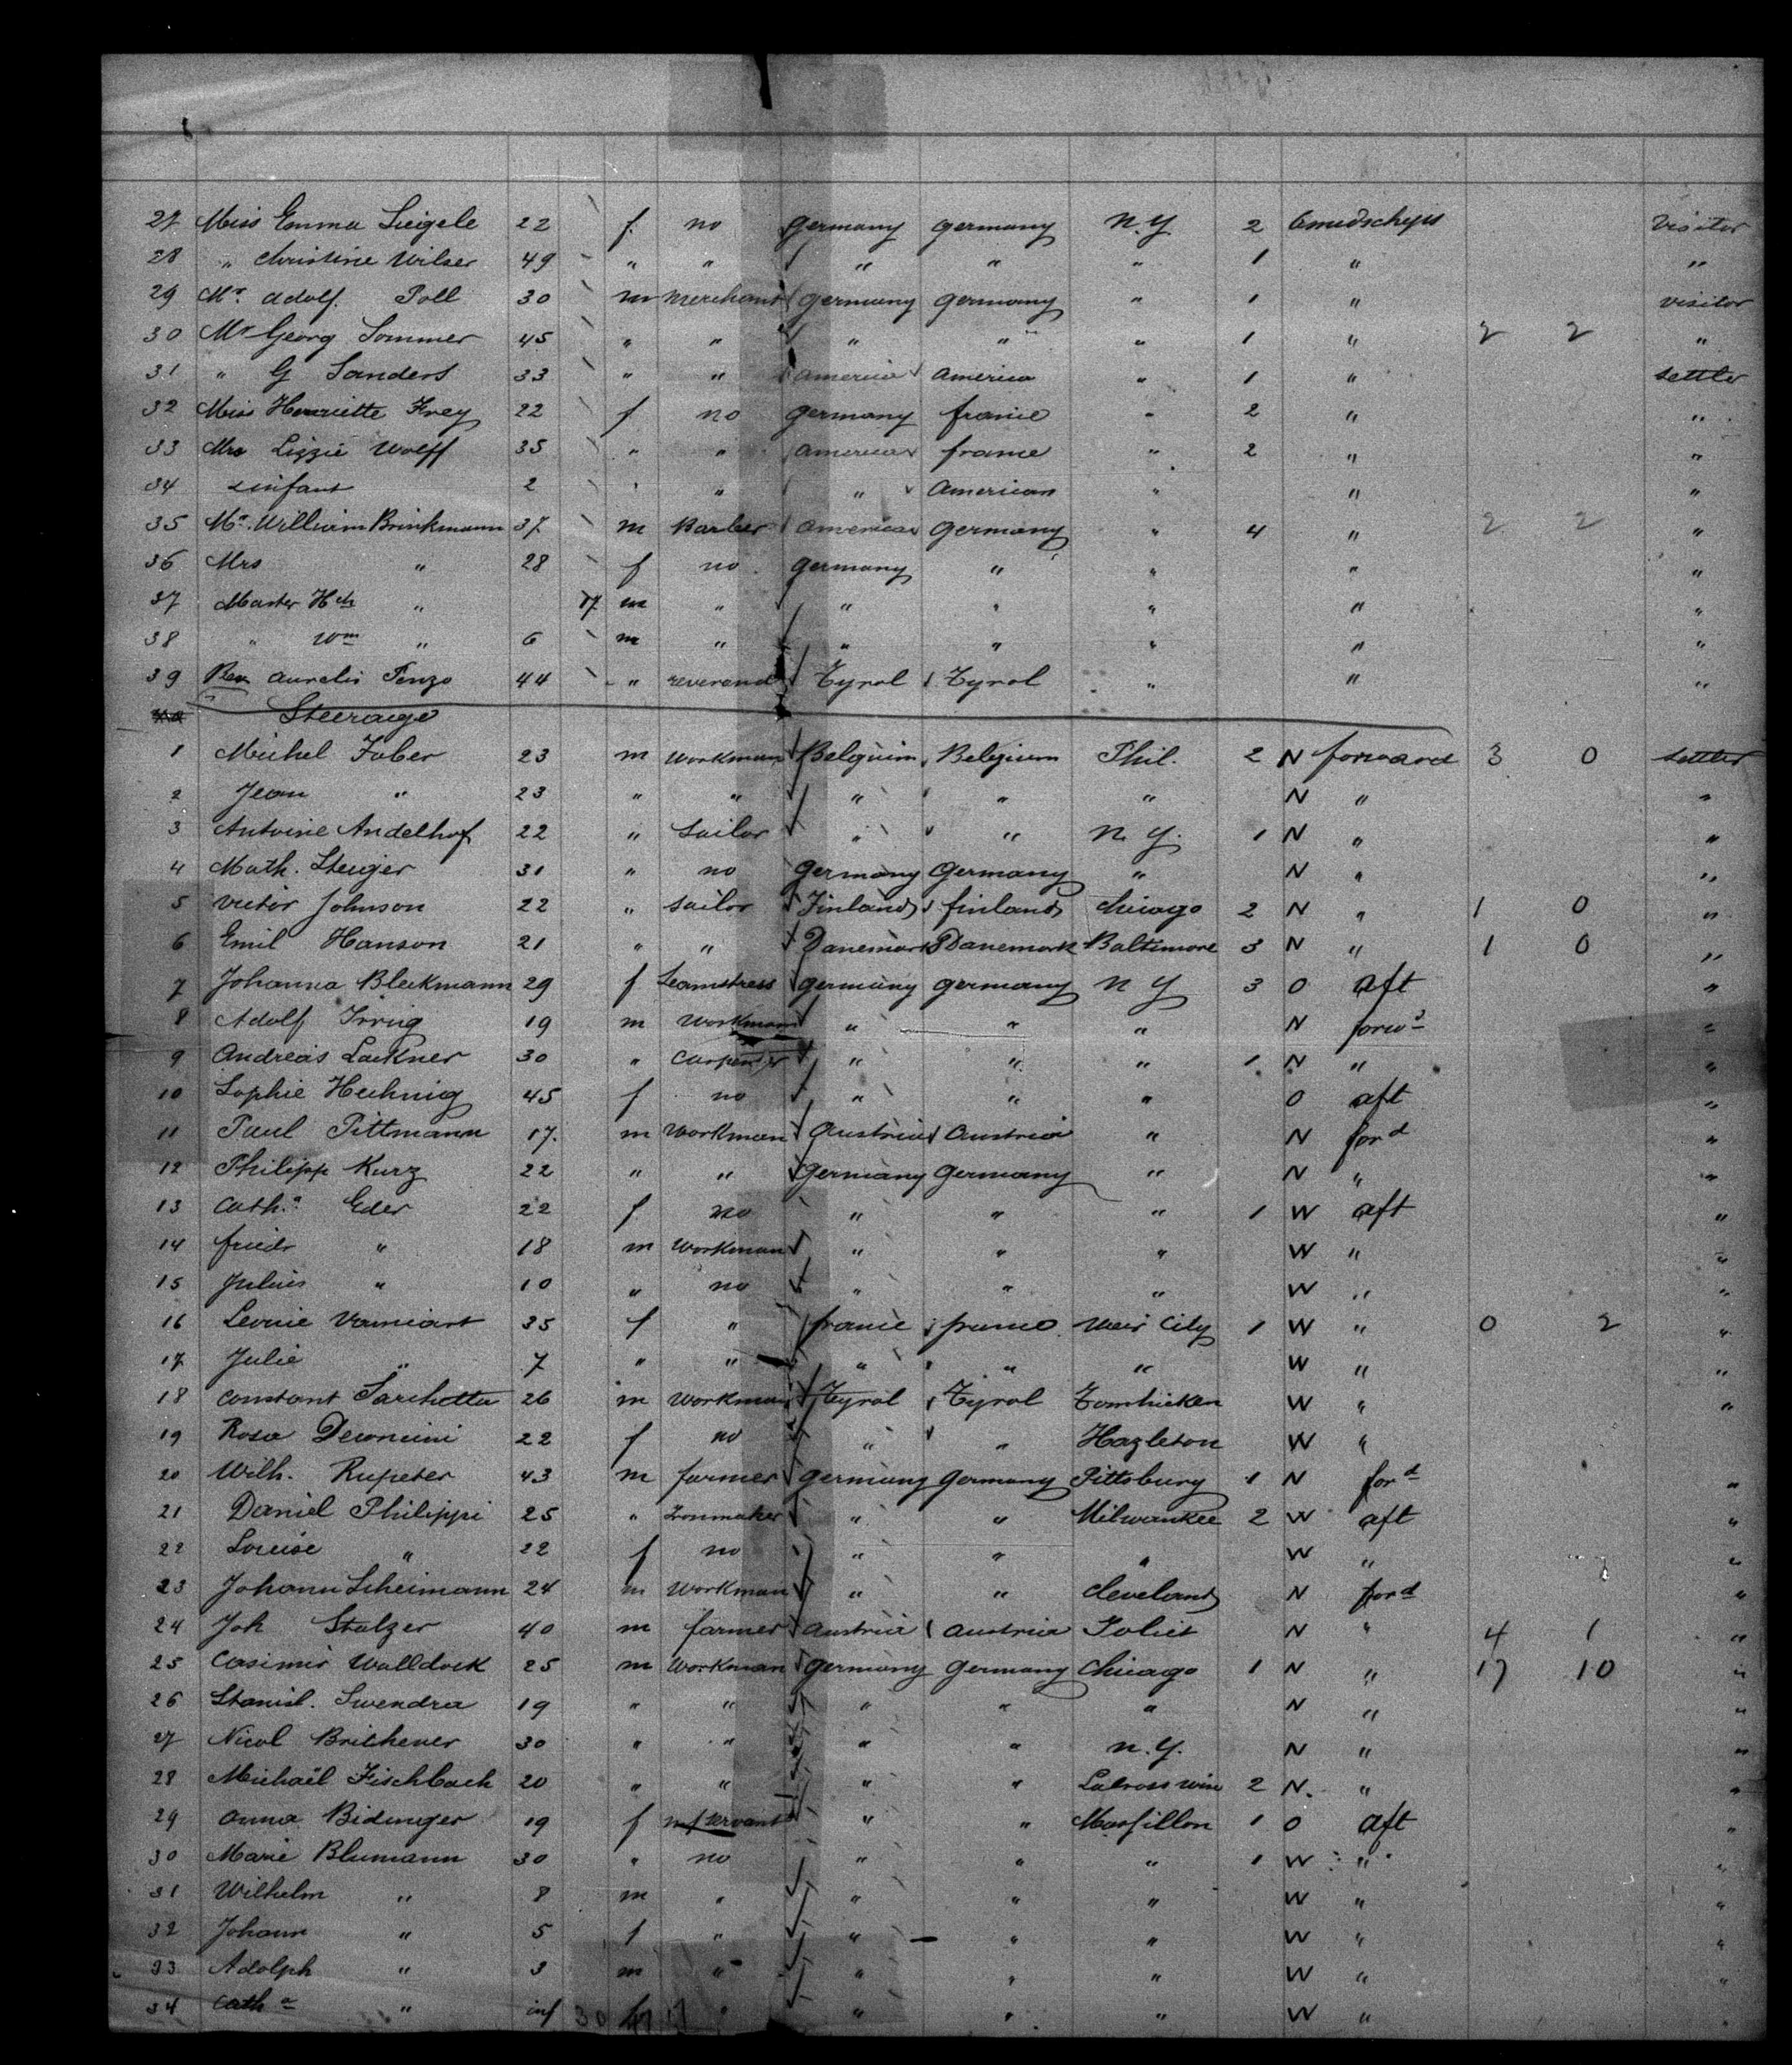 27 Miss Emma Siegele 22 f. no germany germany N.Y. 2 visitor
28 " Christine Wilser 49 " " " " " 1 " "
29 Mr. Adolf. Poll 30 m merchant germany germany " 1 " visitor
30 Mr Georg Sommer 45 " " " " " 1 " 2 2 "
31 " G Sanders 33 " " america america " 1 " settler
32 Miss Henriette Frey 22 f no germany france " 2 " "
33 Mrs Lizzie Wolff 35 " " america france " 2 " "
34 infant 2 " " " American " " "
35 Mr. William Brinkmann 37 m Barber america germany " 4 " 2 2 "
36 Mrs " 28 f no germany " " " "
37 Master Hch " m " " " " " "
38 " Wm " 6 m " " " " " "
39 Rev Aurelio 44 " reverend Tyrol Tyrol " " "
Steerage
1 Michel Faber 23 m Workman Belgium Belgium Phil. 2 N forward 3 0 settler
2 Jean " 23 " " " " " N " "
3 Antoine Andelhof 22 " sailor " " N.Y. 1 N " "
4 Math. Steiger 31 " no germany Germany " N " "
5 Victor Johnson 22 " sailor Finland finland Chicago 2 N " 1 0 "
6 Emil Hanson 21 " " Danemark Danemark Baltimore 3 N " 1 0 "
7 Johanna Bleckmann 29 f Seamstress germany germany N Y 3 O aft "
8 Adolf 19 m Workman " " " N forwd "
9 Andreas Lackner 30 " Carpenter " " " 1 N " "
10 Sophie 45 f no " " " O aft "
11 Paul Pittmann 17. m Workman Austria Austria " N ford "
12 Philipp Kurz 22 " " Germany Germany " N " "
13 Catha. Eder 22 f no " " " 1 W aft "
14 friedr " 18 m Workman " " " W " "
15 Julius " 10 " no " " " W " "
16 Leonie 35 f " france france Weir City 1 W " 0 2 "
17 Julie " 7 " " " " " W " "
18 Constant 26 m Workman Tyrol Tyrol Tomhicken W " "
19 Rosa 22 f no " " Hazleton W "
20 Wilh. Rupeter 43 m farmer Germany Germany Pittsburg 1 N ford "
21 Daniel Philippi 25 " Ironmaker " " Milwaukee 2 W aft "
22 Louise " 22 f no " " " W " "
23 Johann Scheimann 24 m Workman " " Cleveland N ford "
24 Joh Stalzer 40 m farmer Austria Austria Joliet N " 4 1 "
25 Casimir Walldock 25 m Workman Germany Germany Chicago 1 N " 17 10 "
26 Stanisl. Swendra 19 " " " " " N " "
27 Nicol 30 " " " " N.Y. N " "
28 Michaël Fischbach 20 " " " " 2 N. " "
29 Anna Bidinger 19 f servant " " Massillon 1 O aft "
30 Marie Blumann 30 " no " " " 1 W " "
31 Wilhelm " 8 m " " " " W " "
32 Johann " 5 f " " " " W " "
33 Adolph " 3 m " " " " W " "
34 Catha " inf " " " " W "